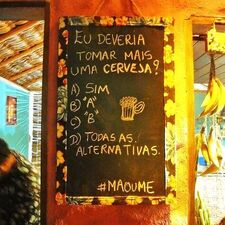 EU DEVERIA
TOMAR MAIS
UMA CERVEJA?
A) SIM
B) "A"
C) "B"
D) TODAS AS
ALTERNATIVAS.
#MAOUME